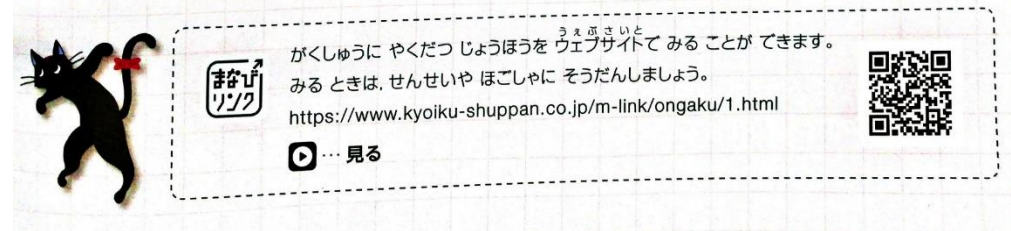 まなび
リンク
うぇぶさいと
がくしゅうに やくだつ じょうほうを ウェブサイトで みる ことが できます。
みる ときは, せんせいや ほごしゃに そうだんしましょう。
https://www.kyoiku-shuppan.co.jp/m-link/ongaku/1.html
…見る